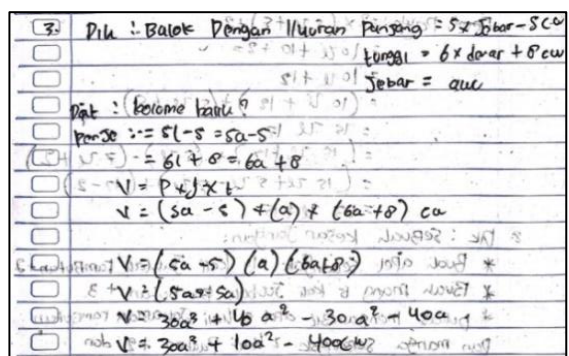 3. Dik : Balok Dengan Ukuran Panjang = 5 x lebar - 5 cm
tinggi = 6 x lebar + 8 cm
lebar = a cm
Dit : Volome balok ?
= 5l - 5 = 5a - 5
= 6l + 8 = 6a + 8
V = P x l x t
V = (5a - 5) + (a) + (6a + 8)
V = (5a - 5) (a) (6a + 8)
V = (5a² - 5a)
V = 30a³ + 40 a² - 30a² - 40a
V = 30a³ + 10a² - 40a cm